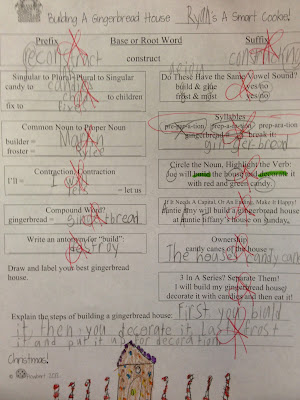 Building A Gingerbread House Ryan's A Smart Cookie!
Prefix Base or Root Word Suffix
reconstruct constructing
Singular to Plural-Plural to Singular
candy to candies
to children
fix to
Do These Have the Same Vowel Sound?
build & glue yes/no
frost & most yes/no
Common Noun to Proper Noun
builder =
froster =
Syllables
pre-par-a-tion prep-a-ra-tion? prep-ara-tion
gingerbread break it:
gin-ger-bread
Contraction-Contraction
I'll = I will
= let us
Circle the Noun, Highlight the Verb:
Joe will build the house and decorate it
with red and green candy.
Compound Word?
gingerbread =
If it Needs A Capital, Or An Ending, Make It Happy!
auntie tiffany will build a gingerbread house
at auntie tiffany's house on sunday.
Write an antonym for "build":
destroy
Ownership
candy canes of the house
The house's candy canes
Draw and label your best gingerbread
house.
3 In A Series? Separate Them!
I will build my gingerbread house
decorate it with candies and then eat it!
Explain the steps of building a gingerbread house: first you build
it then you decorate it last frost
it and put it up for decoration
Christmas!